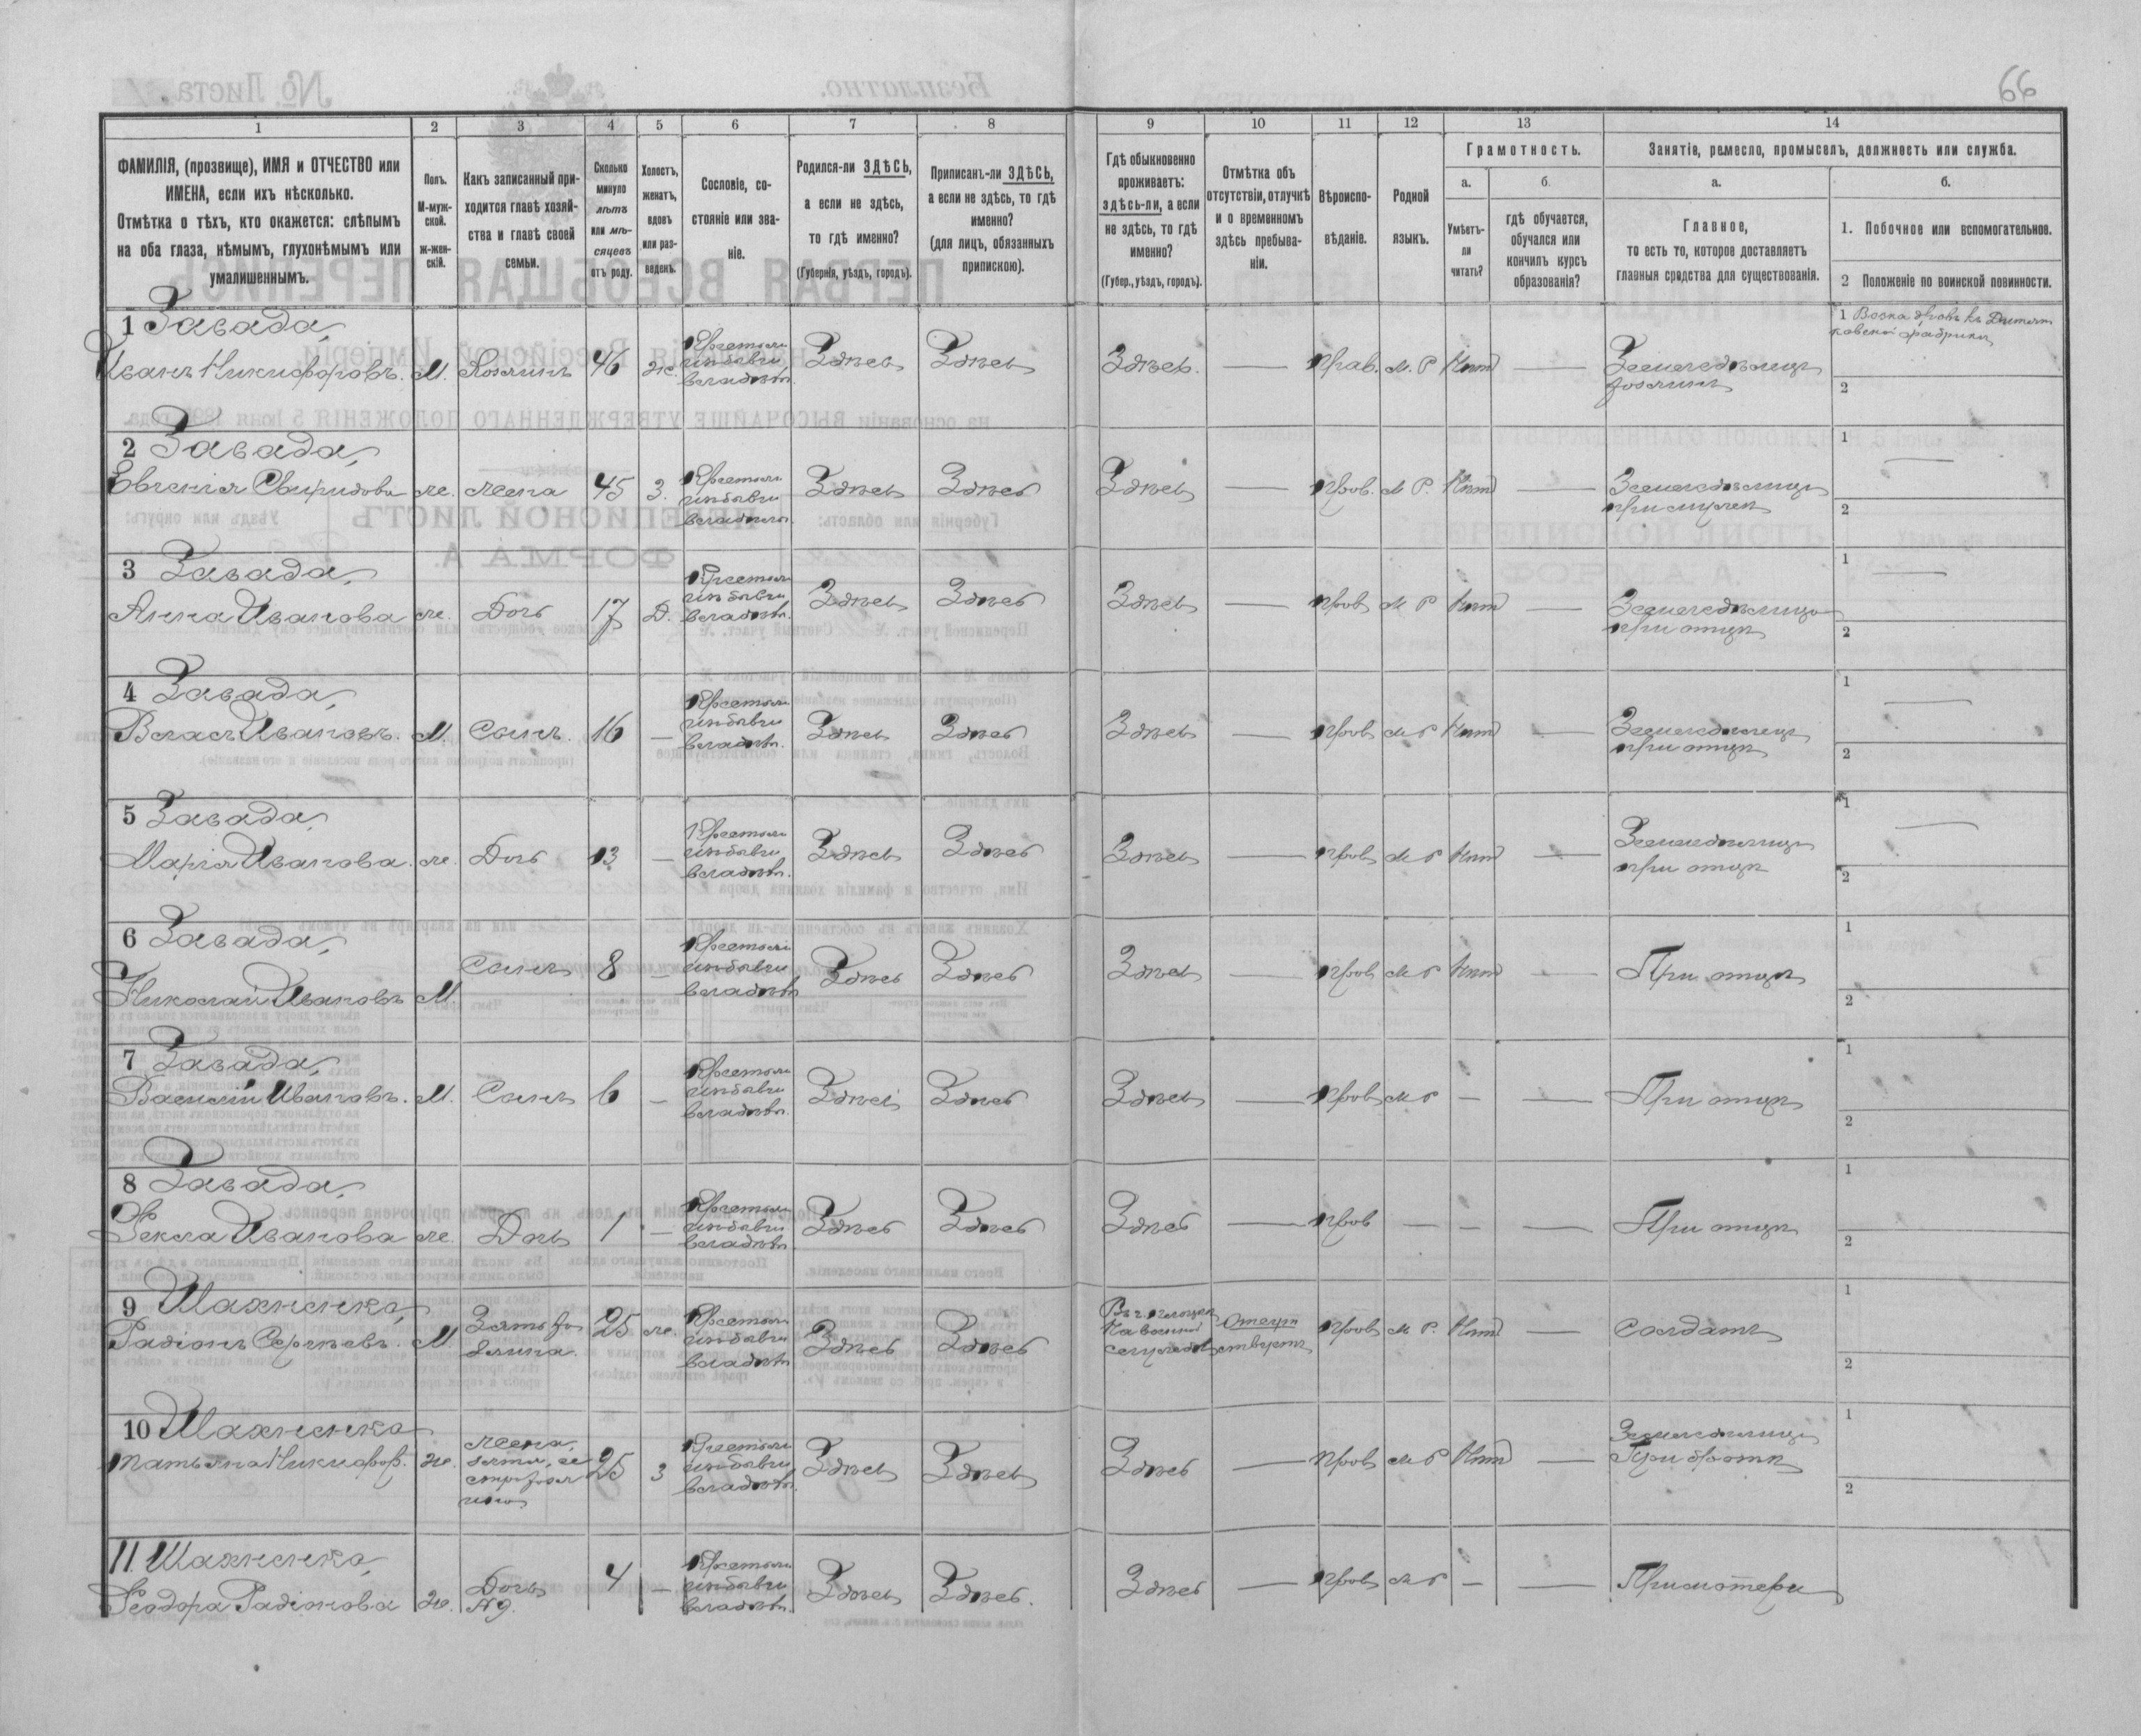 66
1 2 3 4 5 6 7 8 9 10 11 12 13 14
ФАМИЛІЯ, (прозвище), ИМЯ и ОТЧЕСТВО или
ИМЕНА, если ихъ нѣсколько.
Отмѣтка о тѣхъ, кто окажется: слѣпымъ
на оба глаза, нѣмымъ, глухонѣмымъ или
умалишеннымъ.
Полъ.
М-муж-
ской.
ж-жен-
скій.
Какъ записанный при-
ходится главѣ хозяй-
ства и главѣ своей
семьи.
Сколько
минуло
лѣтъ
или мѣ-
сяцевъ
отъ роду.
Холостъ,
женатъ,
вдовъ
или раз-
веденъ.
Сословіе, со-
стояніе или зва-
ніе.
Родился-ли ЗДѢСЬ,
а если не здѣсь,
то гдѣ именно?
(Губернія, уѣздъ, городъ).
Приписанъ-ли ЗДѢСЬ,
а если не здѣсь, то гдѣ
именно?
(для лицъ, обязанныхъ
припискою).
Гдѣ обыкновенно
проживаетъ:
здѣсь-ли, а если
не здѣсь, то гдѣ
именно?
(Губер., уѣздъ, городъ).
Отмѣтка объ
отсутствіи, отлучкѣ
и о временномъ
здѣсь пребыва-
ніи.
Вѣроиспо-
вѣданіе.
Родной
языкъ.
Грамотность.
а.
Умѣетъ-
ли
читать?
б.
гдѣ обучается,
обучался или
кончилъ курсъ
образованія?
Занятіе, ремесло, промыселъ, должность или служба.
а.
Главное,
то есть то, которое доставляетъ
главныя средства для существованія.
б.
1. Побочное или вспомогательное.
2 Положеніе по воинской повинности.
1 Завада,
Иванъ Никифоровъ. М. Хозяинъ 46 ж. Крестьян
инъ бывш
владѣл. Здѣсь Здѣсь Здѣсь. — Прав. М. Р Нѣтъ — Земледѣлецъ
хозяинъ
1 Возка дровъ къ
фабрики
2
2 Завада,
Евгенія Свиридова же. жена 45 З. Крестьян
инъ бывш
владѣл. Здѣсь Здѣсь Здѣсь — Прав. М Р. Нѣтъ — Земледѣлица
при мужѣ
1 —
2
3 Завада,
Анна Иванова же. Дочь 17 Д. Крестьян
инъ бывш
владѣл. Здѣсь Здѣсь Здѣсь — Прав М Р Нѣтъ — Земледѣлица
при отцѣ
1 —
2
4 Завада,
Власъ Ивановъ. М. Сынъ. 16 — Крестьян
инъ бывш
владѣл. Здѣсь Здѣсь Здѣсь — Прав М Р Нѣтъ — Земледѣлецъ
при отцѣ
1 —
2
5 Завада,
Марія Иванова. же. Дочь 13 — Крестьян
инъ бывш
владѣл. Здѣсь Здѣсь Здѣсь — Прав М Р Нѣтъ — Земледѣлица
при отцѣ
1 —
2
6 Завада,
Николай Ивановъ М. Сынъ 8 — Крестьян
инъ бывш
владѣл Здѣсь Здѣсь Здѣсь — Прав М Р Нѣтъ — При отцѣ
1
2
7 Завада,
Василій Ивановъ. М. Сынъ 6 — Крестьян
инъ бывш
владѣл. Здѣсь Здѣсь Здѣсь — Прав М Р — — При отцѣ
1
2
8 Завада,
Фекла Иванова же. Дочь 1 — Крестьян
инъ бывш
владѣл Здѣсь Здѣсь Здѣсь — Прав — — — При отцѣ
1
2
9 Шахненко,
Радіонъ Сергѣевъ. М. Зять хо
зяина. 25 же. Крестьян
инъ бывш
владѣл Здѣсь Здѣсь Отсут
ствуетъ Прав М Р. Нѣтъ — Солдатъ
1
2
10 Шахненко
Татьяна Никифор. ж. жена
зятя, се
стра хозя
ина 25 З Крестьян
инъ бывш
владѣл. Здѣсь Здѣсь Здѣсь — Прав М Р Нѣтъ — Земледѣлица
При братѣ
1
2
11. Шахненко,
Феодора Радіонова ж. Дочь
№ 9. 4 — Крестьян
инъ бывш
владѣл. Здѣсь Здѣсь. Здѣсь — Прав М Р — — При матери